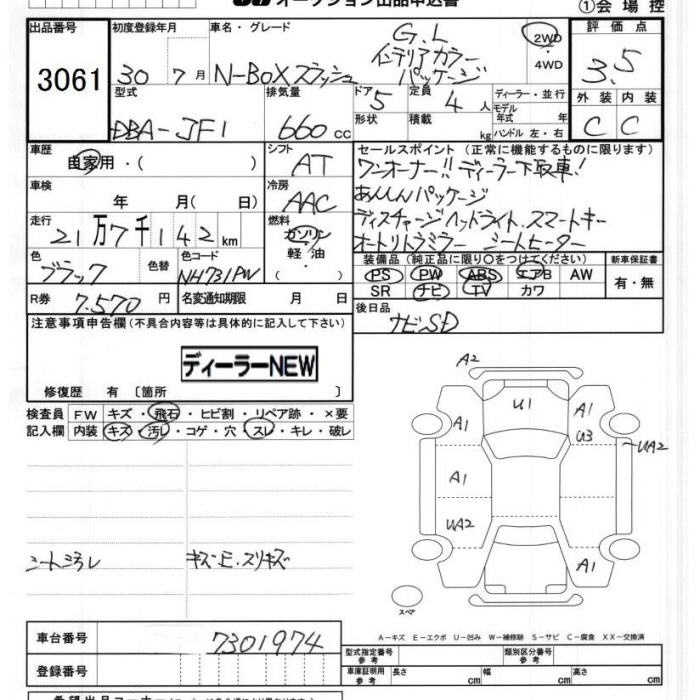 オークション出品申込書
①会場控
出品番号 初度登録年月 車名・グレード 評価点
3061 30年7月 N-BOXスラッシュ G.L インテリアカラーパッケージ 2WD・4WD 3.5
型式 排気量 ドア 定員 ディーラー・並行 外装 内装
DBA-JF1 660cc 5 4人 モデル年式 年 C C
形状 積載 kg ハンドル 左・右
車歴 シフト セールスポイント(正常に機能するものに限ります)
自家用・( ) AT ワンオーナー!!ディーラー下取車!
車検 冷房 あんしんパッケージ
年 月( 日) AAC ディスチャージヘッドライト.スマートキー
走行 燃料 オートリトラミラー シートヒーター
21万7千142km ガソリン・軽油・( )
色 色替 色コード 装備品(純正品に限り○をつけてください) 新車保証書
ブラック NH731PW PS PW ABS エアB AW 有・無
SR ナビ TV カワ
R券 7.570円 名変通知期限 月 日 後日品
ナビSD
注意事項申告欄(不具合内容等は具体的に記入して下さい)
ディーラーNEW
修復歴 有 〔箇所 〕
検査員記入欄 FW キズ・飛石・ヒビ割・リペア跡・×要
内装 キズ・汚レ・コゲ・穴・スレ・キレ・破レ
シート汚レ キズ・E.スリキズ
A2
U1
A1 A1
U3
UA2
A1
UA2
A1
スペア
A-キズ E-エクボ U-凹み W-補修跡 S-サビ C-腐食 XX-交換済
車台番号 7301974
型式指定番号 参考 類別区分番号 参考
登録番号 車庫証明用 参考 長さ cm 幅 cm 高さ cm